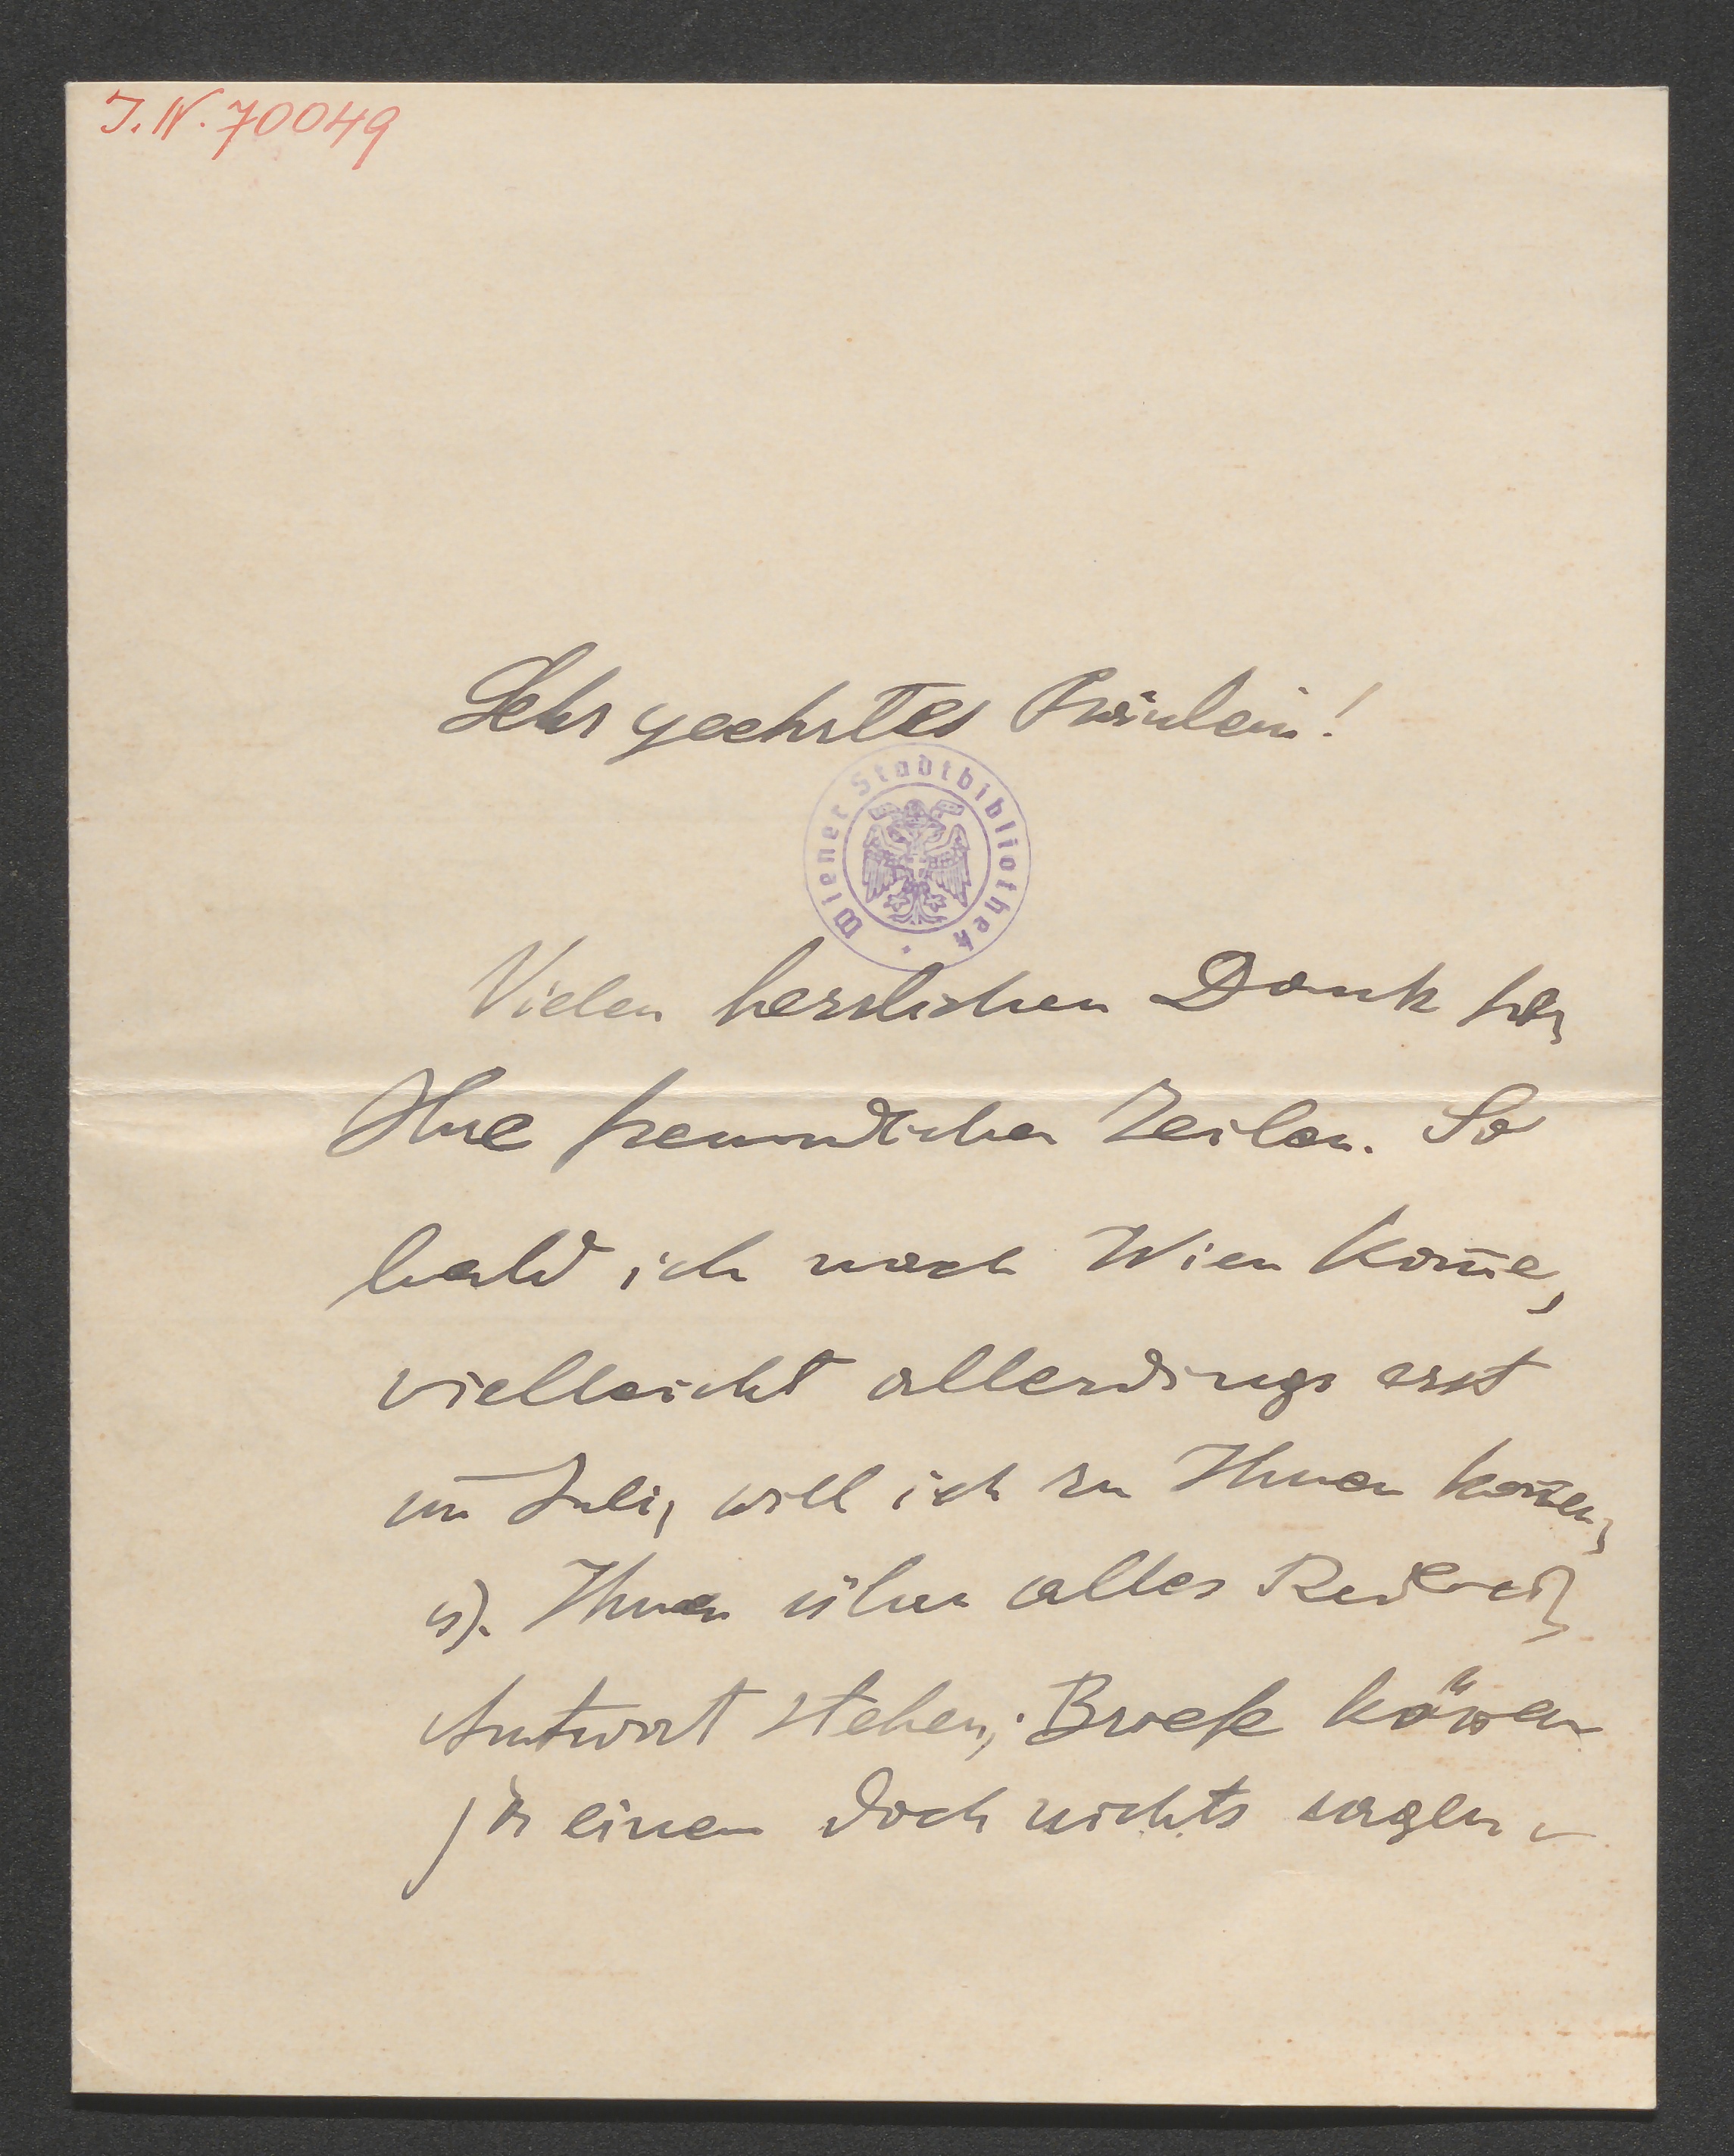 J.N. 70049
Sehr geehrtes Fräulein!
Wiener Stadtbibliothek
Vielen herzlichen Dank für
Ihre freundlichen Zeilen. So
bald ich nach Wien kom̄e,
vielleicht allerdings erst
im Juli, will ich zu Ihnen kom̄en,
u. Ihnen über alles Rede und
Antwort stehen; Briefe kön̄en
ja einem doch nichts sagen